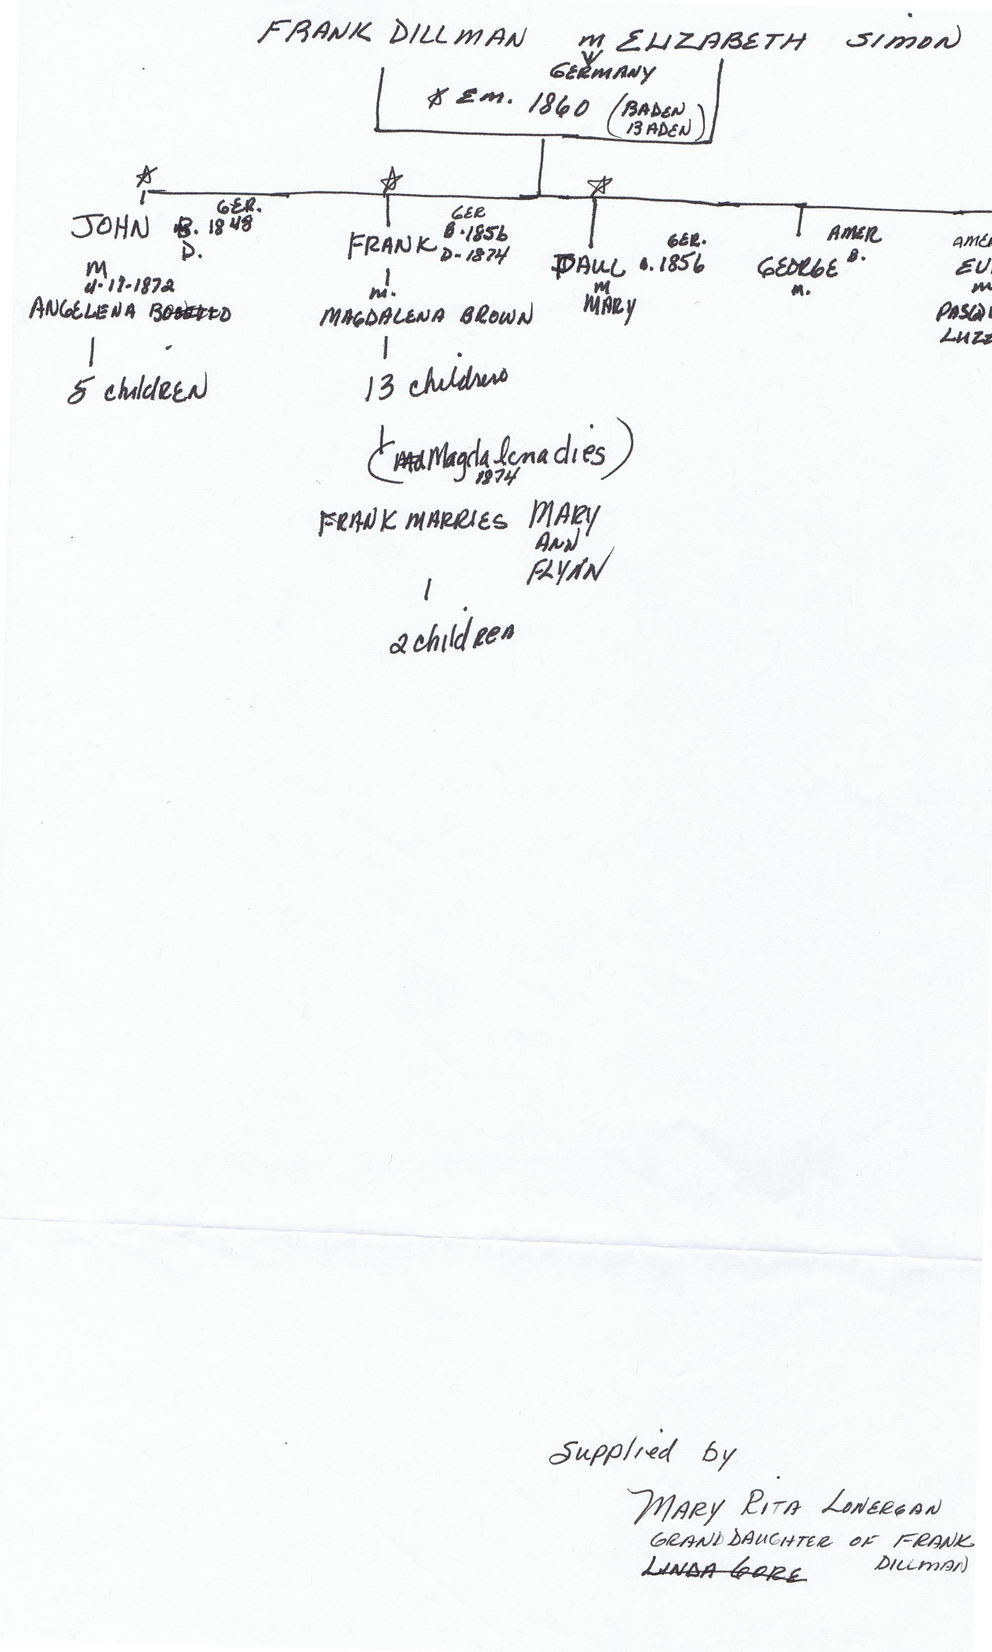 FRANK DILLMAN m ELIZABETH SIMON
GERMANY
Em. 1860 (BADEN BADEN)
JOHN B. 1848 GER.
D.
M
4-19-1872
ANGELENA
5 children
FRANK GER
B. 1856
D-1874
m.
MAGDALENA BROWN
13 children
(Magdalena dies)
1874
FRANK MARRIES MARY
ANN
FLYNN
2 children
PAUL B. 1856 GER.
m
MARY
GEORGE AMER
B.
m.
AMER
m
Supplied by
MARY RITA LONERGAN
GRANDDAUGHTER OF FRANK
LINDA GORE DILLMAN